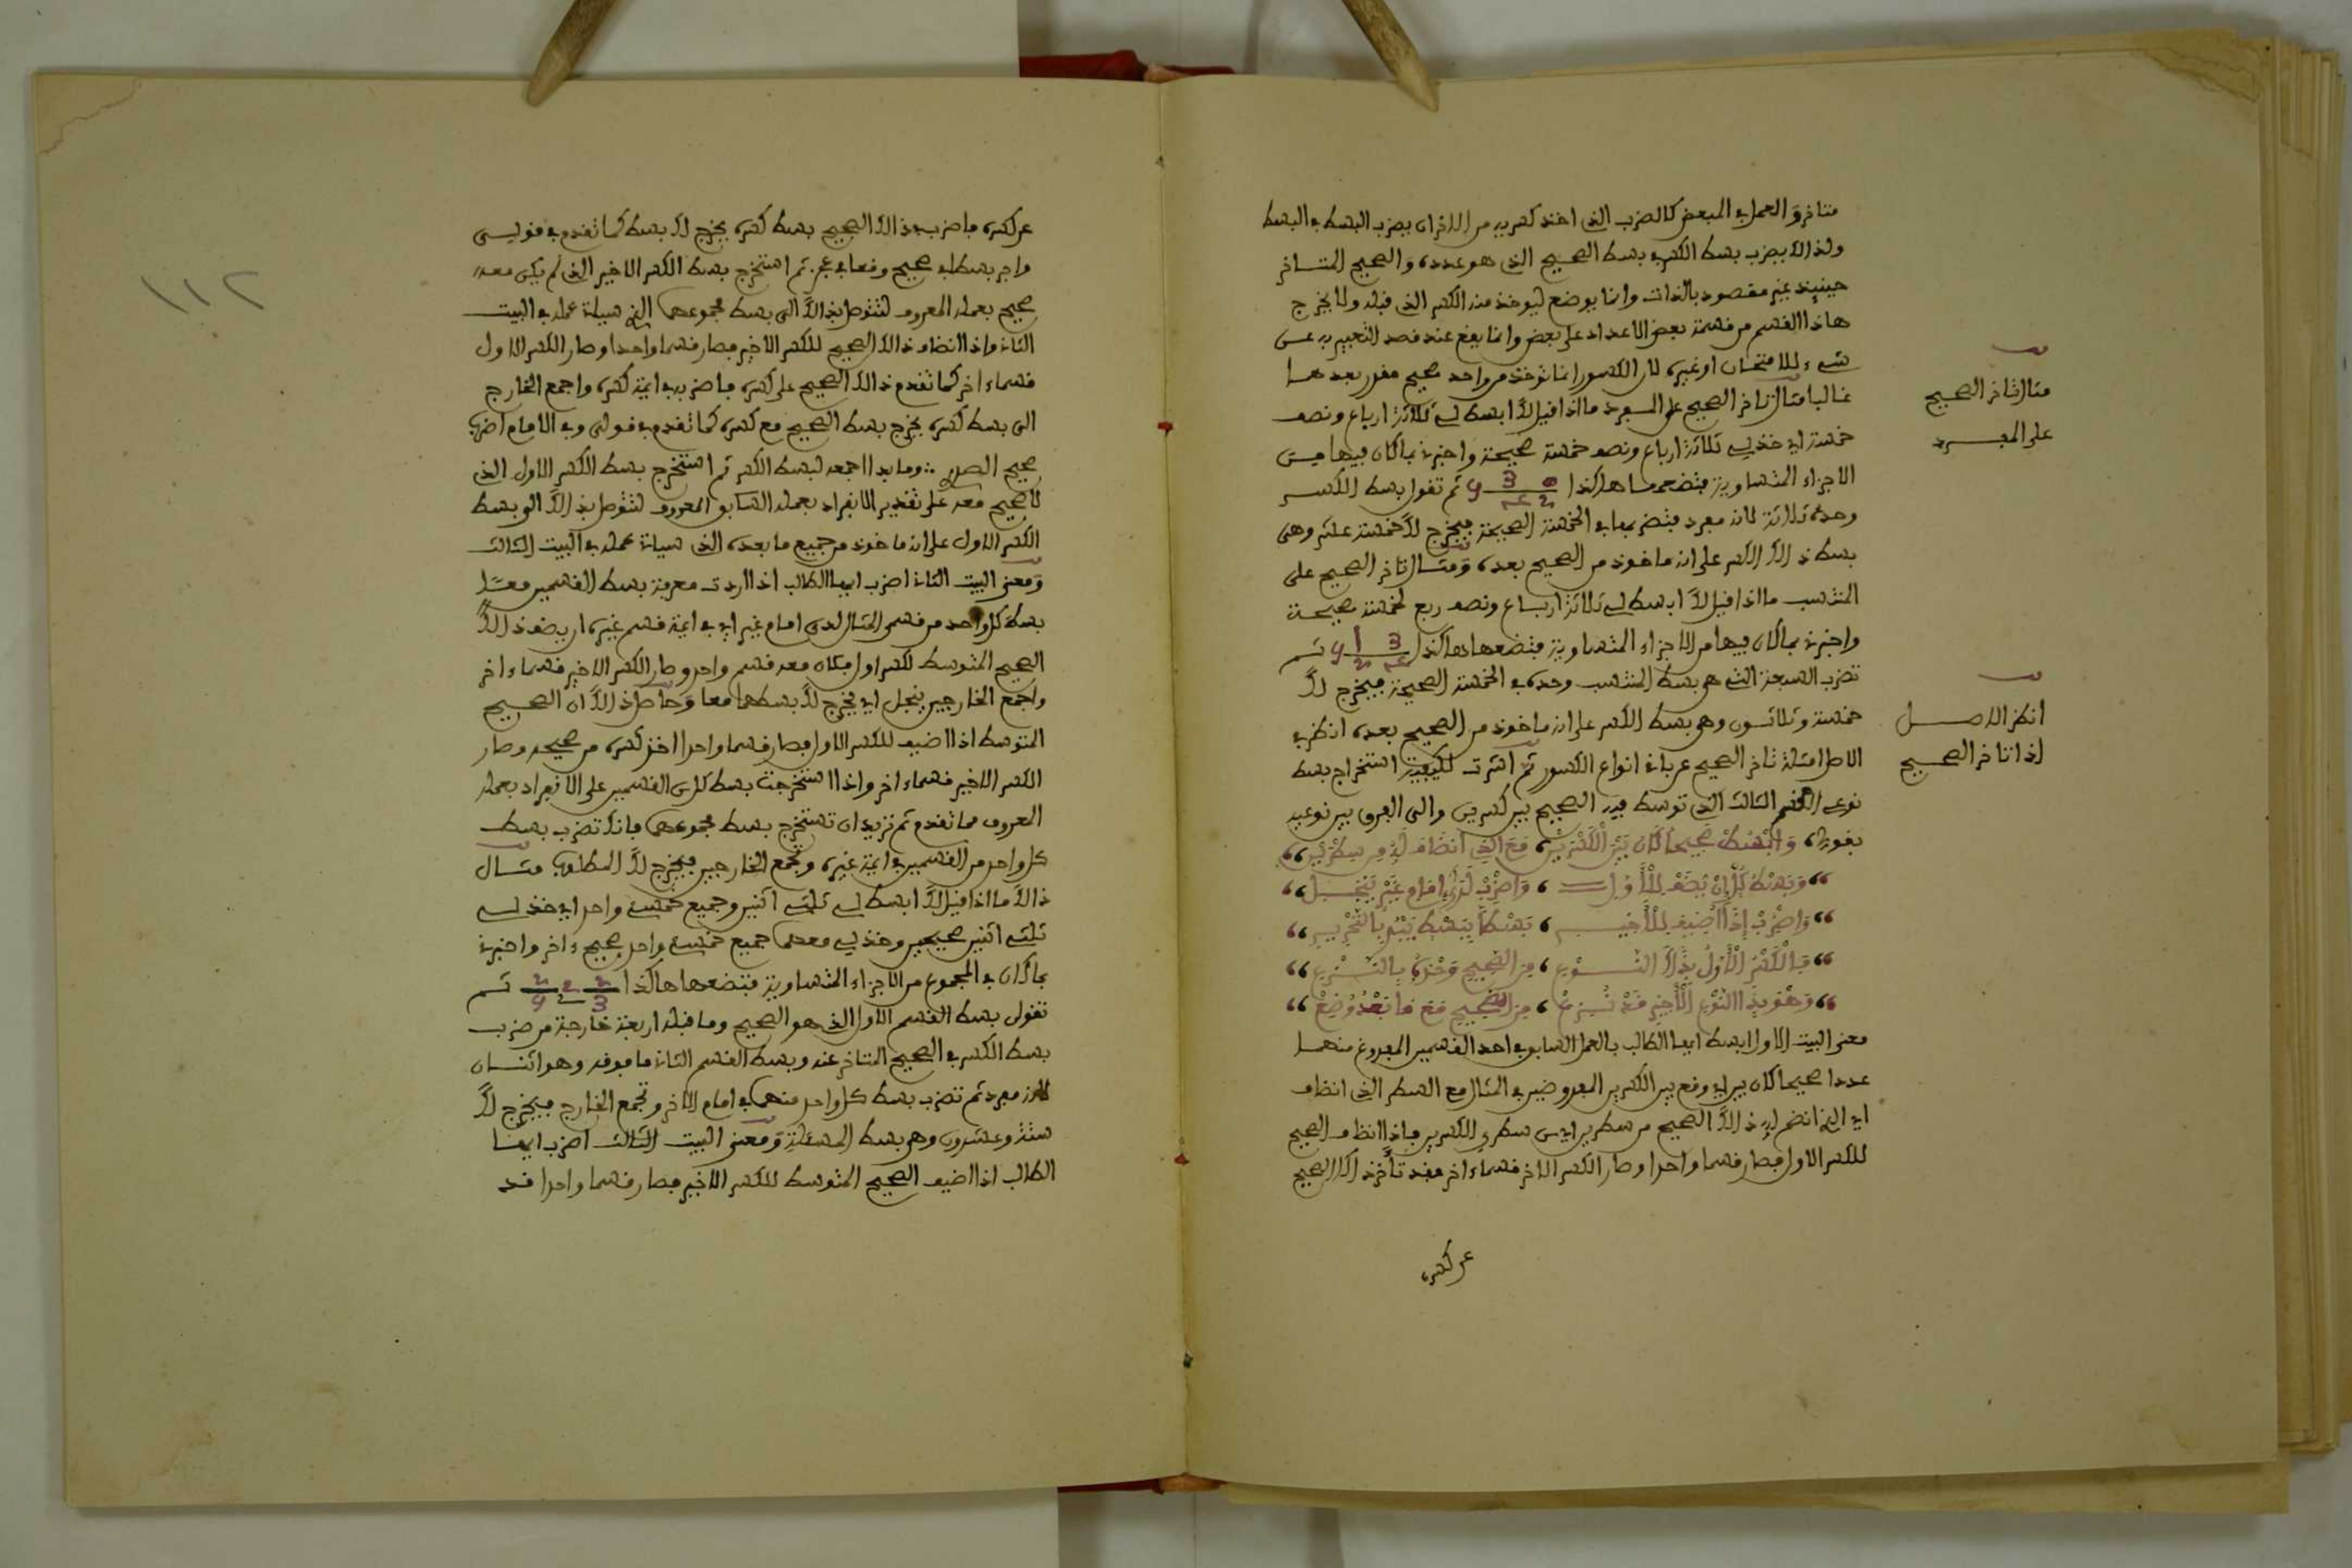 متاخر والعمل في المبعض كالضرب الذى اخذ كسريه من الاخر ان يضرب البسط في البسط
ولذالك يضرب بسط الكسر في بسط الصحيح الذى هو عدده والصحيح المتاخر
حينيذ غير مقصود بالذات وانما يوضع ليوخذ منه الكسر الذى قبله ولا يخرج
هاذا القسم من قسمة بعض الاعداد على بعض وانما يقع عند قصد التعبير به عن
شىء للامتحان او غيره لان الكسور انما توخذ من واحد صحيح مقدر بعدها
غالبا مثال تاخر الصحيح على المفرد ما اذا قيل لك ابسط لى ثلاثة ارباع ونصف
خمسة اى خذ لى ثلاثة ارباع ونصف خمسة صحيحة واخبرنى بما كان فيها من
الاجزاء المتساوية فتضعها هاكذا ثم تقول بسط الكسر
وحده ثلاثة لانه مفرد فتضربها في الخمسة الصحيحة فيخرج لك خمسة عشر وهى
بسط ذالك الكسر على انه ماخوذ من الصحيح بعده ومثال تاخر الصحيح على
المنتسب ما اذا قيل لك ابسط لى ثلاثة ارباع ونصف ربع لخمسة صحيحة
واخبرنى بما كان فيها من الاجزاء المتساوية فتضعها هاكذا ثم
تضرب السبعة التى هى بسط المنتسب وحده في الخمسة الصحيحة فيخرج لك
خمسة وثلاثون وهى بسط الكسر على انه ماخوذ من الصحيح بعده انظر في
الاصل امثلة تاخر الصحيح عن باقى انواع الكسور ثم اشرت لكيفية استخراج بسط
نوعى القسم الثالث الذى توسط فيه الصحيح بين كسرين والى الفرق بين نوعيه
بقولى وابسط صحيحا كان بين الكسرين مع الذى انضاف له من سطرين
وبسط كل ان يضف للاول واضرب لدى امام غير ينجل
واضرب اذا اضيف للاخير بسطا ببسط بيتها بالتحرير
فالكسر الاول بذاك النوع من الصحيح وحده بالنزع
وهو بذا النوع الاخير قد نزع من الصحيح مع ما بعد وضع
معنى البيت الاول ابسط ايها الطالب بالعمل السابق احد القسمين المفروغ منهما
عددا صحيحا كان بين اى وقع بين الكسرين المعروضين في المثال مع السطر الذى انضاف
اى الذى انضم اليه ذالك الصحيح من سطرين اى من سطرى الكسرين فاذا انضاف الصحيح
للكسر الاول فصار قسما واحدا وصار الكسر الاخر قسماء اخر فقد تأخر ذالك الصحيح
عن كسره
مثال تاخر الصحيح
على المفرد
انظر الاصل
اذا تاخر الصحيح
١١٢
عن كسره فاضرب ذالك الصحيح ببسط كسره يخرج لك بسط كما تقدم في قولى
واجر بسطا في صحيح وقعا في عجز ثم استخرج بسط الكسر الاخير الذى لم يكن معه
صحيح بعمله المعروف لتتوصل بذالك الى بسط مجموعهما الذى سياتى عمله في البيت
الثانى واذا انضاف ذالك الصحيح للكسر الاخير فصار قسما واحدا وصار الكسر الاول
قسماء اخر كما تقدم ذالك الصحيح على كسره فاضربه في ايمة كسره واجمع الخارج
الى بسط كسره يخرج بسط الصحيح مع كسره كما تقدم في قولى وفي الامام اضرب
صحيح الصدر وما بدا اجمعه لبسط الكسر ثم استخرج بسط الكسر الاول الذى
لا صحيح معه على تقدير الانفراد بعمله السابق المعروف لتتوصل بذالك الى بسط
الكسر الاول على انه ماخوذ من جميع ما بعده الذى سياتى عمله في البيت الثالث
ومعنى البيت الثانى اضرب ايها الطالب اذا اردت معرفة بسط القسمين معا
بسط كل واحد من قسمى المثال لدى امام غير اى في ايمة قسم غيره ان يضف ذالك
الصحيح المتوسط لكسر اول فكان معه قسم واحد وصار الكسر الاخير قسماء اخر
واجمع الخارجين ينجل اى يخرج لك بسطهما معا وحاصل ذالك ان الصحيح
المتوسط اذا اضيف للكسر الاول فصار قسما واحدا اخذ كسره من صحيحه وصار
الكسر الاخير قسماء اخر واذا استخرجت بسط كل من القسمين على الانفراد بعمله
المعروف مما تقدم ثم تريد ان تستخرج بسط مجموعهما فانك تضرب بسط
كل واحد من القسمين في ايمة غيره وتجمع الخارجين فيخرج لك المطلوب مثال
ذالك ما اذا قيل لك ابسط لى ثلثى اثنين وجميع خمسى واحد اى خذ لى
ثلثى اثنين صحيحين وخذ لى معهما جميع خمسى واحد صحيح ء اخر واخبرنى
بما كان في المجموع من الاجزاء المتساوية فتضعها هاكذا ثم
تقول بسط القسم الاول الذى هو الصحيح وما قبله اربعة خارجة من ضرب
بسط الكسر في الصحيح المتاخر عنه وبسط القسم الثانى ما فوقه وهو اثنان
لانه مفرد ثم تضرب بسط كل واحد منهما في امام الاخر وتجمع الخارج فيخرج لك
ستة وعشرون وهى بسط المسئلة ومعنى البيت الثالث اضرب ايها
الطالب اذا اضيف الصحيح المتوسط للكسر الاخير فصار قسما واحدا قد